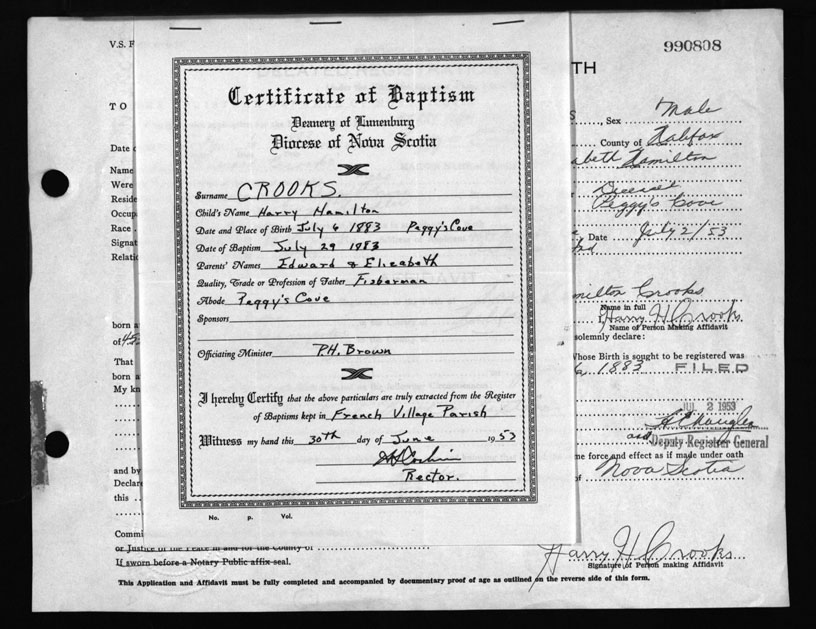 V.S. F
990808
TH
Certificate of Baptism
Deanery of Lunenburg
Diocese of Nova Scotia
Surname CROOKS.
Child's Name Harry Hamilton
Date and Place of Birth July 6 1883 Peggy's Cove
Date of Baptism July 29 1883
Parents' Names Edward & Elizabeth
Quality, Trade or Profession of Father Fisherman
Abode Peggy's Cove
Sponsors
Officiating Minister P.H. Brown
I hereby Certify that the above particulars are truly extracted from the Register
of Baptisms kept in French Village Parish
Witness my hand this 30th day of June 1953
Rector.
No. p. Vol.
TO
Date
Name
Were
Reside
Occup
Race
Signat
Relatio
born a
of 45
That
born a
My kn
and by
Declare
this
Commi
S, Sex Male
County of Halifax
abeth Hamilton
Deceased
Peggy's Cove
Date July 2/53
milton Crooks
Name in full
Harry H Crooks
Name of Person Making Affidavit
solemnly declare:
Whose Birth is sought to be registered was
1883 FILED
JUL 2 1953
and Deputy Registrar General
me force and effect as if made under oath
of Nova Scotia
or Justice of the Peace in and for the County of
If sworn before a Notary Public affix seal.
Harry H Crooks
Signature of Person making Affidavit
This Application and Affidavit must be fully completed and accompanied by documentary proof of age as outlined on the reverse side of this form.